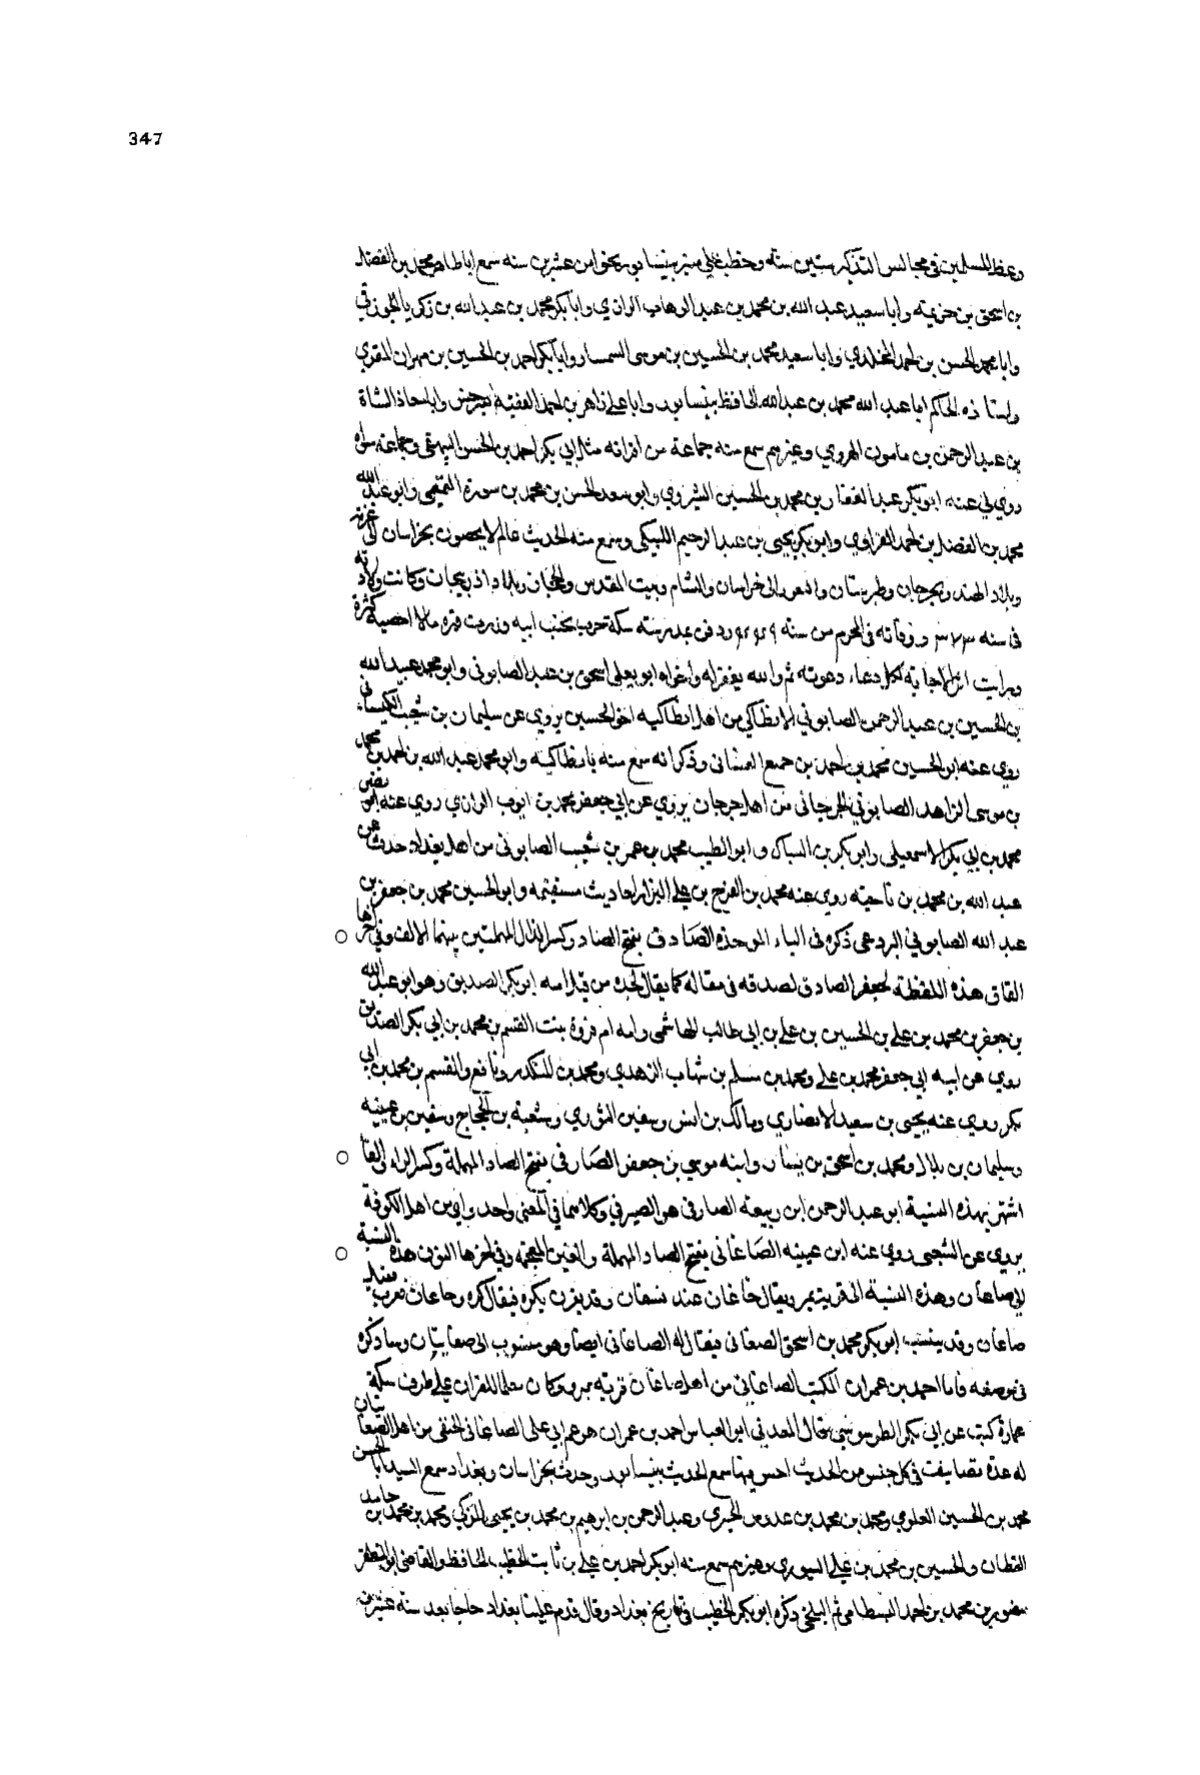 347
وعظ المسلمين في مجالس التذكير ستين سنة وخطب على منبر نيسابور نحوا من عشرين سنه سمع اباطاهر محمد بن الفضل
بن اسحق بن خزيمة وابا سعيد عبد الله بن محمد بن عبد الوهاب الرازي وابا بكر محمد بن عبد الله بن زكريا الجوزقي
وابا محمد الحسن بن احمد المخلدي وابا سعيد محمد بن الحسين بن موسى السمسار وابا بكر احمد بن الحسين بن مهران المقري
واستاذه الحاكم ابا عبد الله محمد بن عبد الله الحافظ بنيسابور وابا علي زاهر بن احمد الفقيه بسرخس وابا معاذ الشاة
بن عبد الرحمن بن مامون الهروي وغيرهم سمع منه جماعة من اقرانه مثل ابي بكر احمد بن الحسن البيهقي وجماعة سواه
روي لي عنه ابو بكر عبد الغفار بن محمد بن الحسين الشيروي وابو سعد الحسن بن محمد بن سورة التميمي وابو عبد الله
محمد بن الفضل بن احمد الفراوي وابو بكر يحيى بن عبد الرحيم اللبيكي وسمع منه الحديث عالم لا يحصون بخراسان الى غزنة
وبلاد الهند وبجرجان وطبرستان والثغور الى خراسان والشام وبيت المقدس والحجاز وبلاد اذربيجان وكانت ولادته
في سنه ٣٧٣ ووفاته في المحرم من سنة ٤٤٩ ودفن بمدرسته سكة حرب بجنب ابيه وزرت قبره مالا احصيه كثرة
ورايت اثر الاجابة لكل دعاء دعوته ثم والله يغفر له واخواه ابو يعلى اسحق بن عبد الصابوني وابو محمد عبيد الله
بن الحسين بن عبد الرحمن الصابوني الانطاكي من اهل انطاكيه اخو الحسين يروي عن سليمان بن شعيب الكيساني
روي عنه ابو الحسين محمد بن احمد بن جميع الغساني وذكر انه سمع منه بانطاكية وابو محمد عبد الله بن احمد بن محمد
بن موسى الزاهد الصابوني الجرجاني من اهل جرجان يروي عن ابي جعفر محمد بن ايوب الرازي روي عنه ابو نصر
محمد بن ابي بكر الاسمعيلي وابو بكر بن السباك وابو الطيب محمد بن عمر بن شعيب الصابوني من اهل بغداد حدث عن
عبد الله بن محمد بن ناجية روي عنه محمد بن الفرج بن علي البزاز احاديث مستقيمة وابو الحسين محمد بن جعفر بن
عبد الله الصابوني البردعي ذكره في الباء الموحدة الصادق بفتح الصاد وكسر الدال المهملتين بينهما الالف وفي اخرها
القاق هذه اللفظة لجعفر الصادق لصدقه في مقاله كما يقال لجده من قبل امه ابو بكر الصديق وهو ابو عبد الله
بن جعفر بن محمد بن علي بن الحسين بن علي بن ابي طالب الهاشمي وامه ام فروة بنت القسم بن محمد بن ابي بكر الصديق
روي عن ابيه ابي جعفر محمد بن علي ومحمد بن مسلم بن شهاب الزهدي ومحمد بن المنكدر ونافع والقسم بن محمد بن ابي
بكر روي عنه يحيى بن سعيد الانصاري ومالك بن انس وسفين الثوري وشعبة بن الحجاج وسفين بن عيينه
وسليمان بن بلال ومحمد بن اسحق بن يسار وابنه موسي بن جعفر الصارفي بفتح الصاد المهملة وكسر الراء والفا
اشتهر بهذه النسبة ابو عبد الرحمن ابن ربيعة الصارفي هو الصيرفي وكلاهما في المعنى واحد وابي من اهل الكوفة
يروي عن الشعبي روي عنه ابن عيينه الصاغاني بفتح الصاد المهملة والغين المعجمة وفي اخرها النون هذه النسبة
الي صاغان وهذه النسبة الى قرية بمرو يقال جاغان عند سنقان وقد يقرن بكره فيقال كره وجاغان فعرب فقيل
صاغان وقد ينسب ابو بكر محمد بن اسحق الصغاني فيقال له الصاغاني ايضا وهو منسوب الى صغانيان وساذكره
في موضعه فاما احمد بن عمران المكتب الصاغاني من اهل صاغان قرية بمرو وكان معلما للقران على طرف سكة
عمارة كتب عن ابي بكر الطرسوسي قال المعدني ابو العباس احمد بن عمران هو عم ابي علي الصاغاني الحنفي من اهل الصغانيان
له عدة تصانيف في كل جنس من الحديث احسن فيها سمع الحديث بنيسابور وحدث بخراسان وبغداد سمع السيد ابا الحسن
محمد بن الحسين العلوي ومحمد بن محمد بن عدوس الحيري وعبد الرحمن بن ابرهيم بن محمد بن يحيى المزكي ومحمد بن محمد بن حامد
القطان والحسين بن محمد بن علي السيوري وغيرهم سمع منه ابو بكر احمد بن علي بن ثابت الخطيب الحافظ والقاضي ابو المظفر
منصور بن محمد بن احمد البسطامي ثم البلخي ذكره ابو بكر الخطيب في تاريخ بغداد وقال قدم علينا بغداد حاجا بعد سنة عشرين